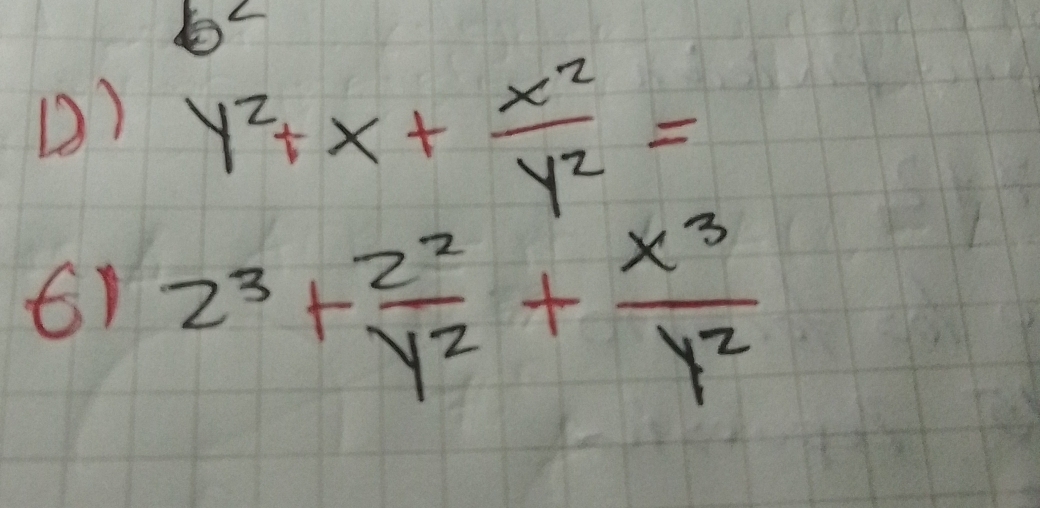 b²
D) y² + x + x²/y² =
6) z³ + z²/y² + x³/y²